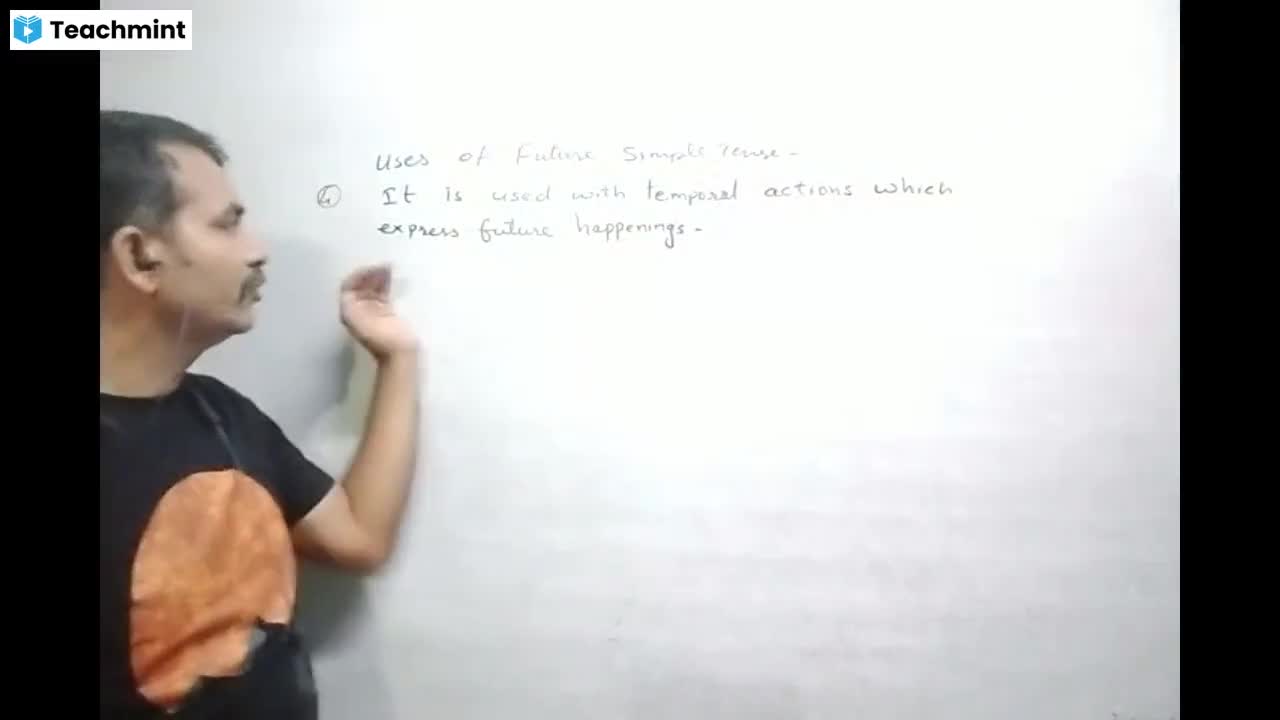 Teachmint
Uses of Future Simple Tense -
④ It is used with temporal actions which
express future happenings -